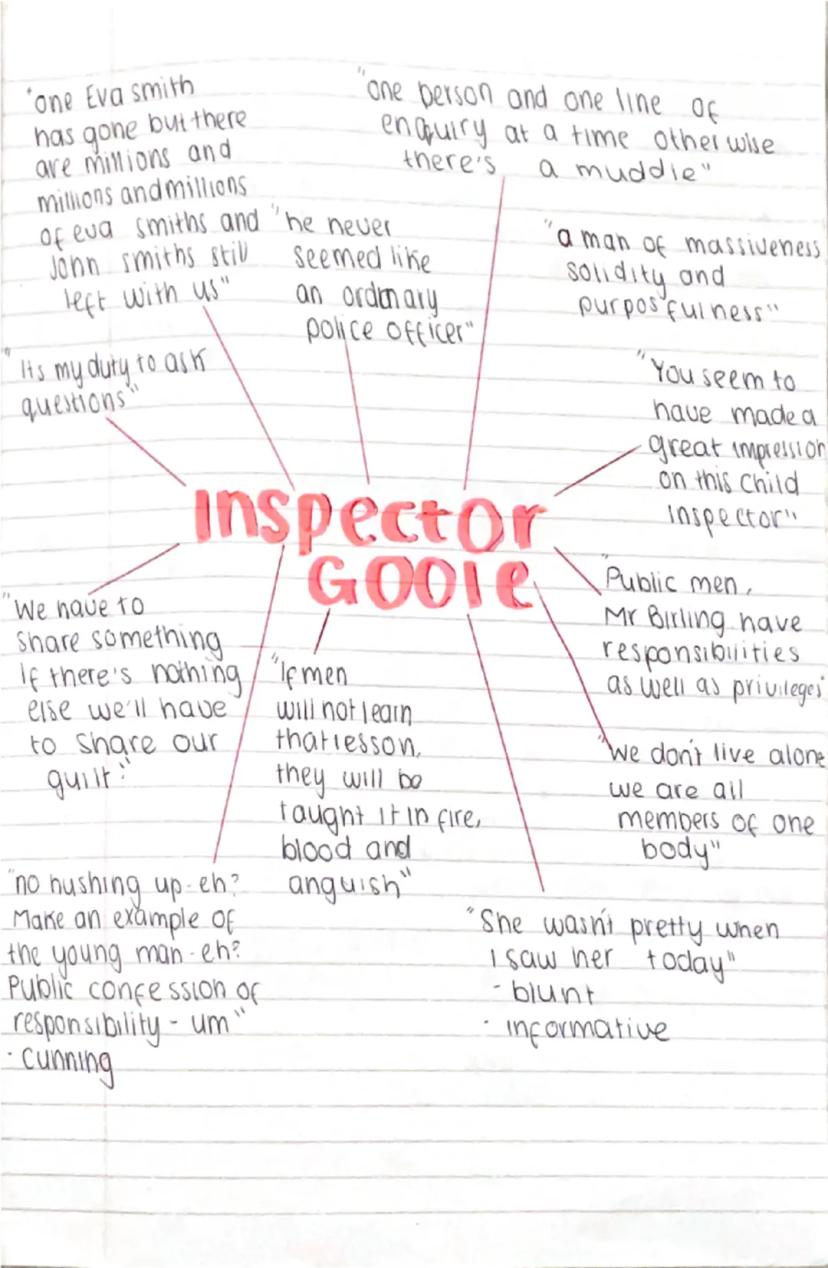 "one Eva smith
has gone but there
are millions and
millions and millions
of eva smiths and
John smiths still
left with us"
"one person and one line of
enquiry at a time otherwise
there's a muddle"
"he never
seemed like
an ordinary
police officer"
"a man of massiveness
solidity and
purposefulness"
"Its my duty to ask
questions"
"You seem to
have made a
great impression
on this child
inspector"
Inspector
Goole
"Public men,
Mr Birling have
responsibilities
as well as privileges"
"We have to
share something
if there's nothing
else we'll have
to share our
guilt."
"If men
will not learn
that lesson,
they will be
taught it in fire,
blood and
anguish"
"We don't live alone
we are all
members of one
body"
"no hushing up-eh?
Make an example of
the young man-eh?
Public confession of
responsibility - um"
- cunning
"She wasn't pretty when
I saw her today"
- blunt
- informative